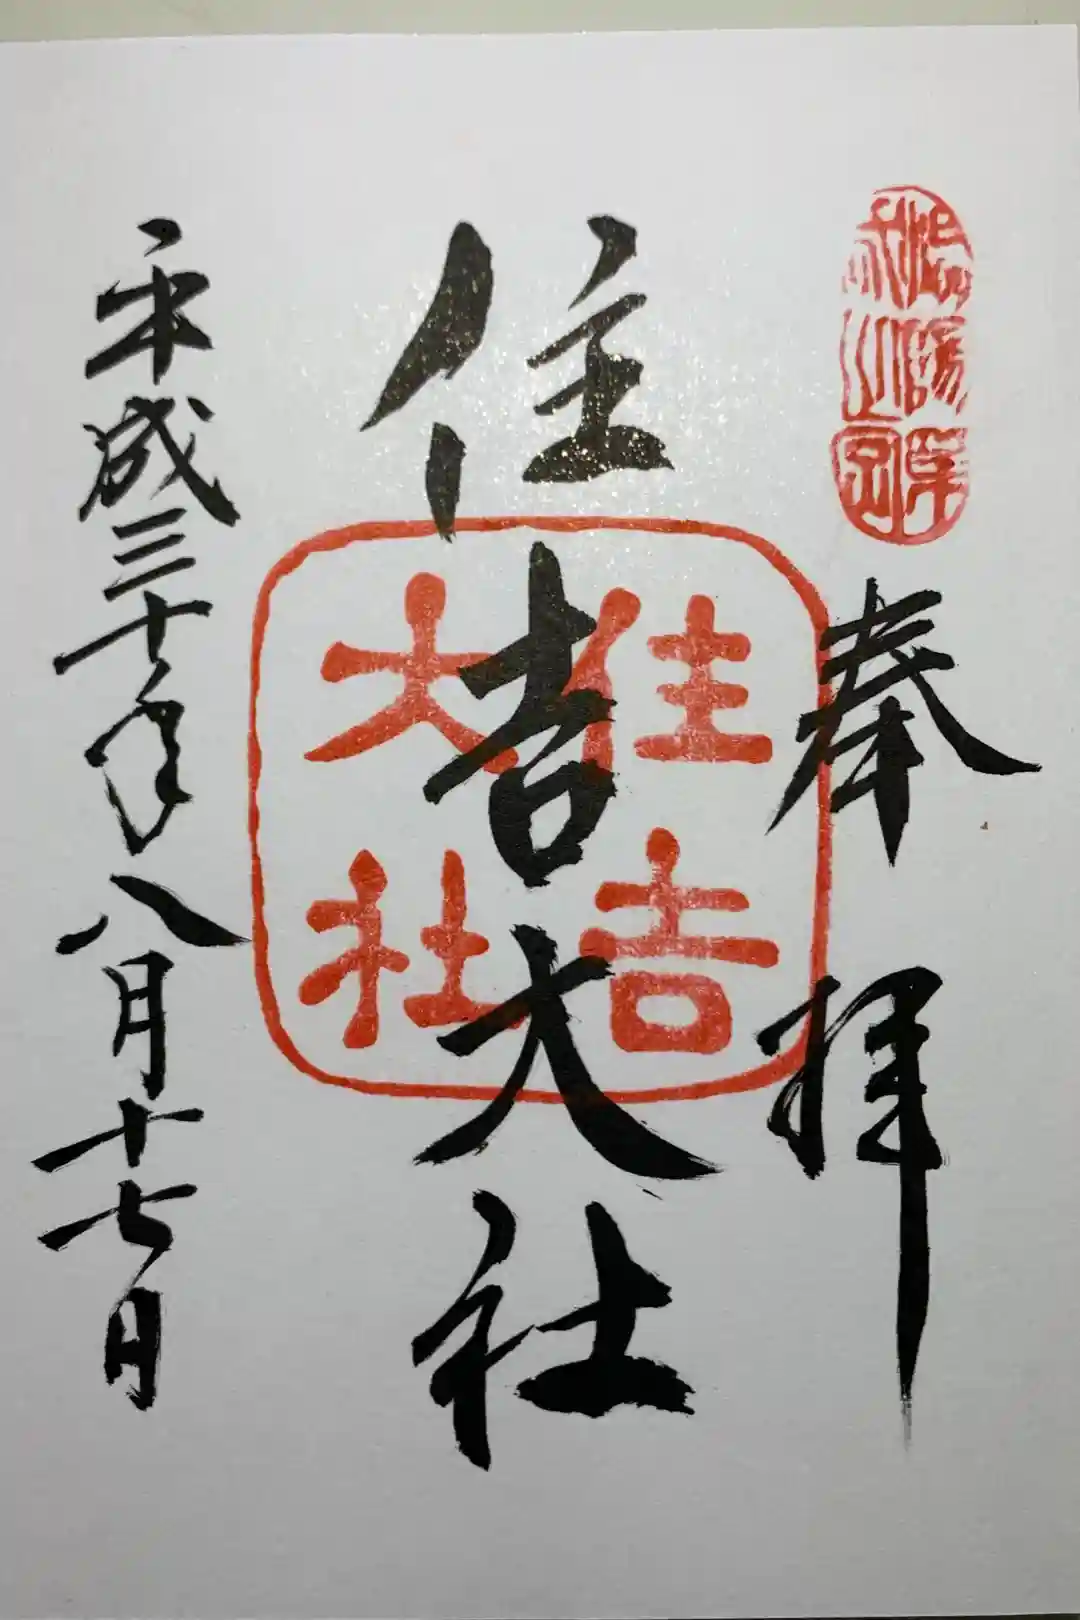 奉拝
住吉大社
住吉大社
平成三十年八月十七日